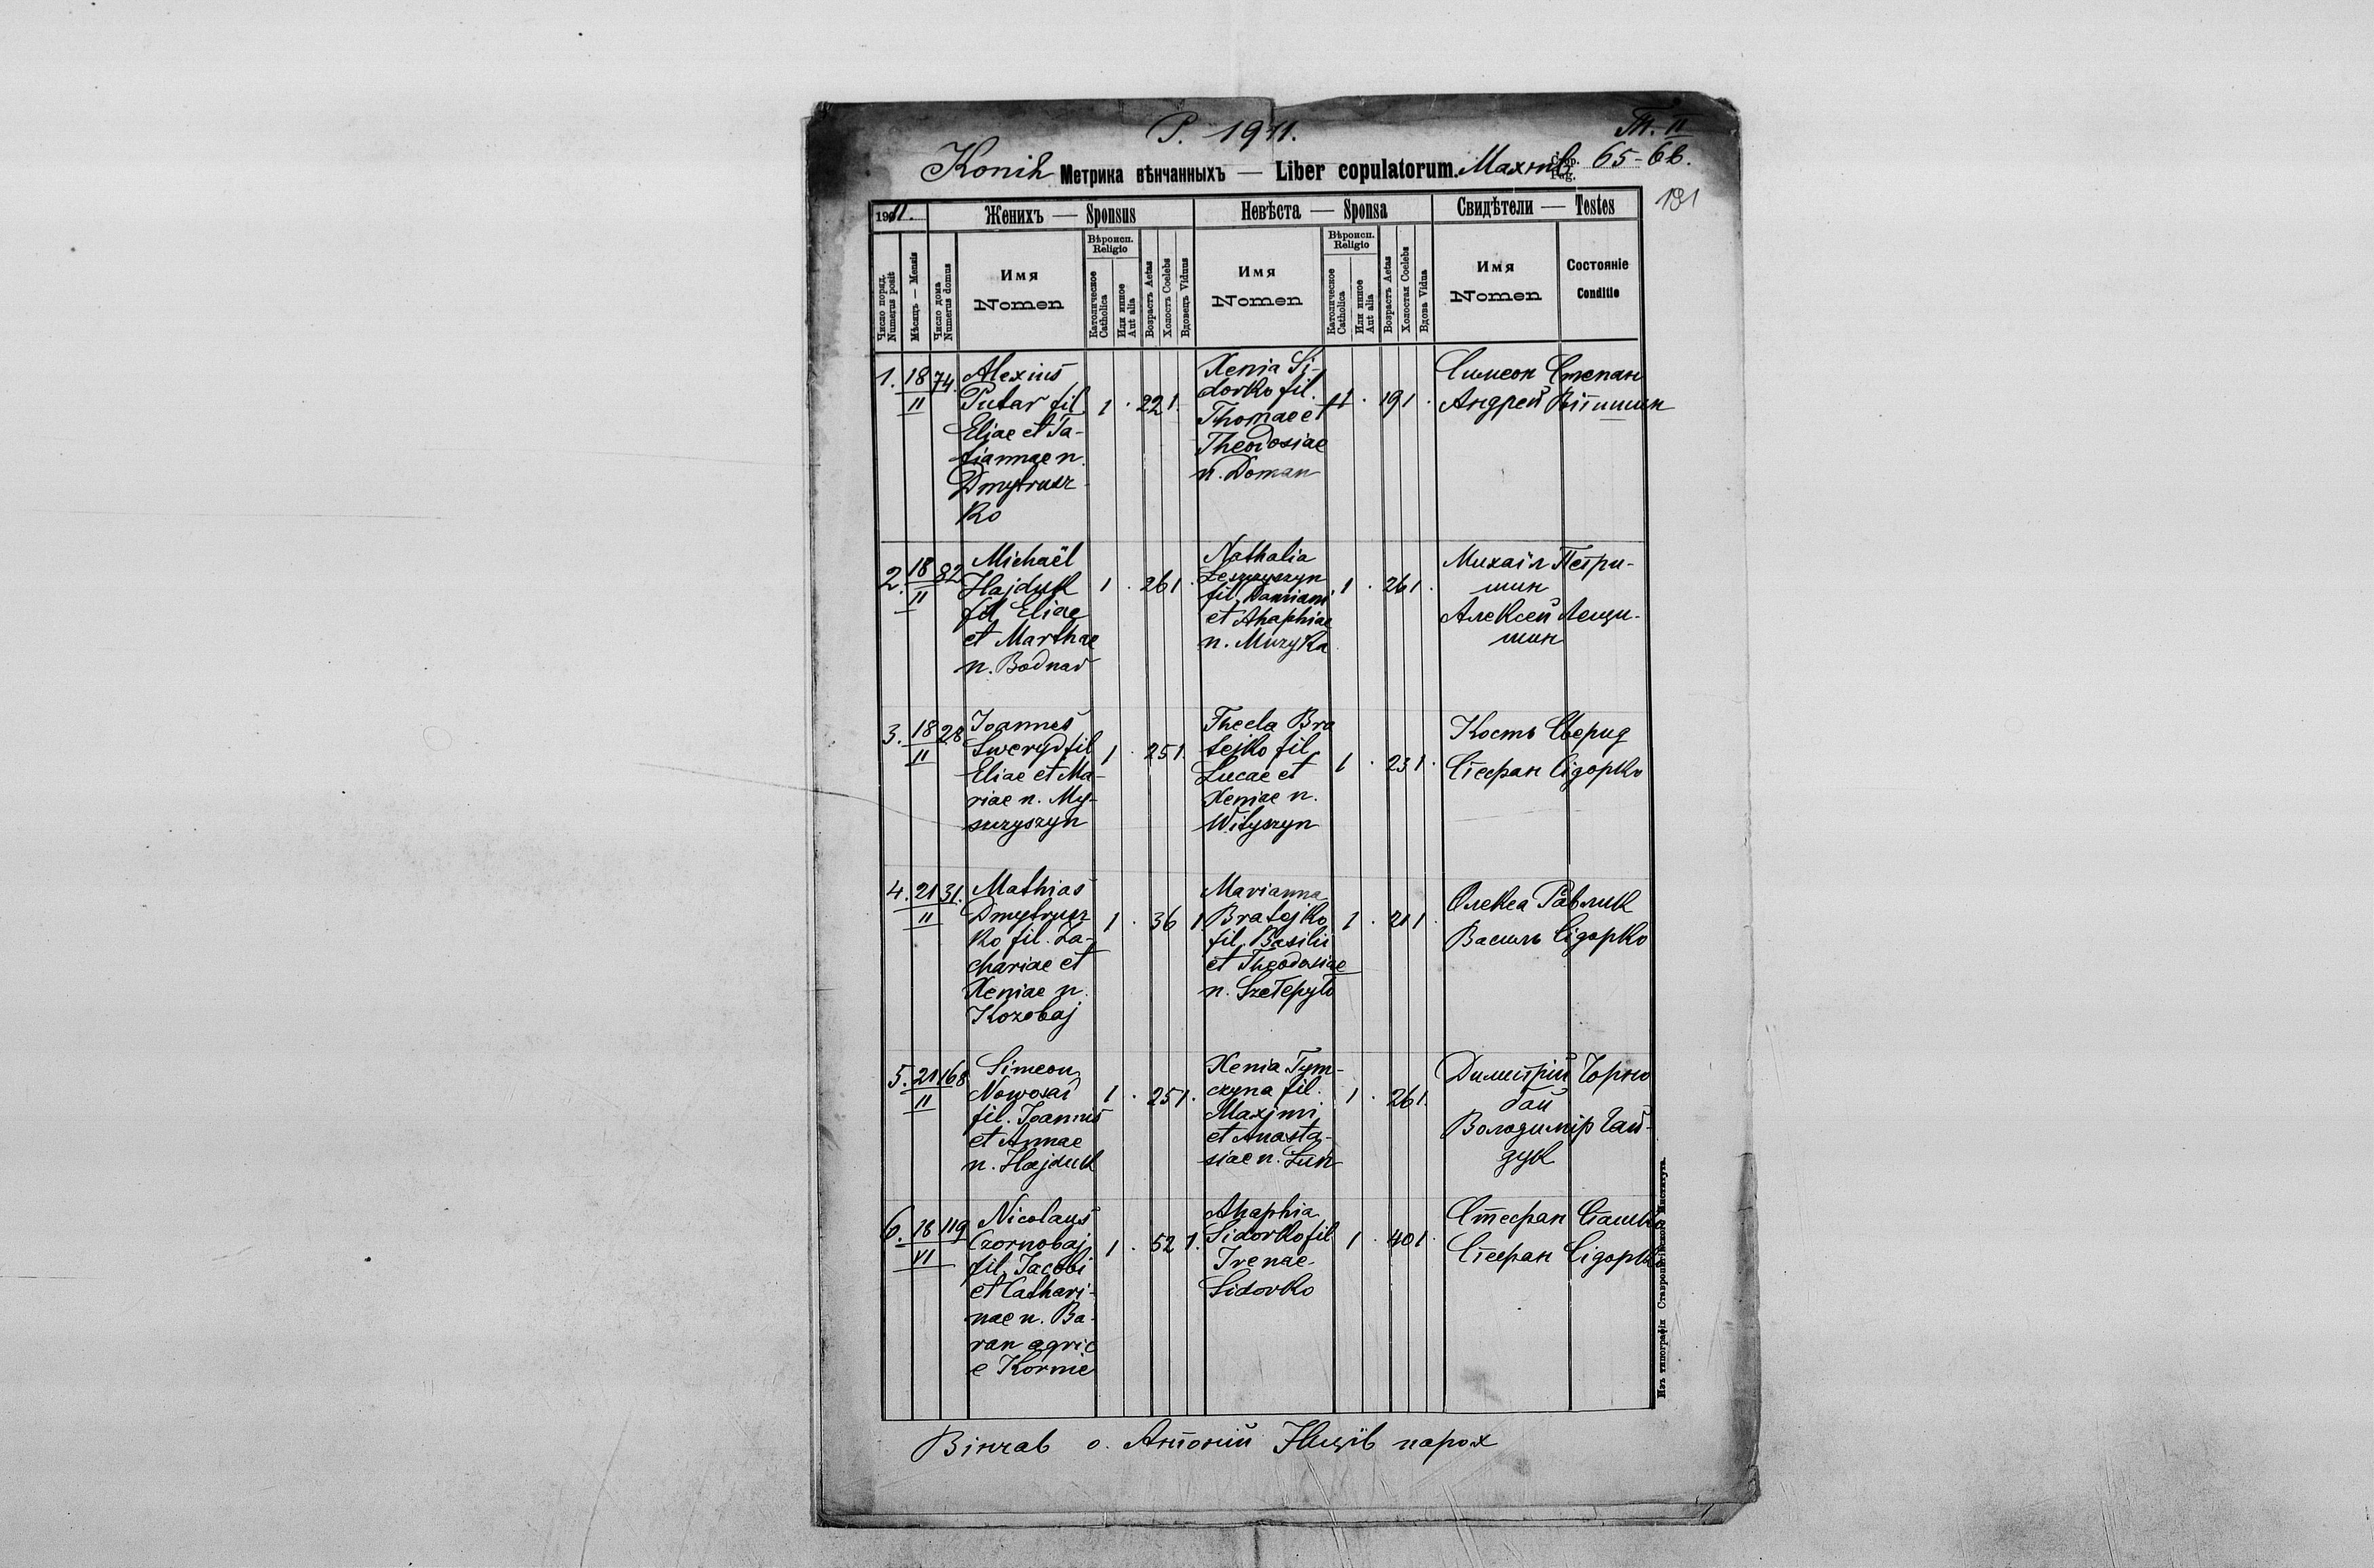 P. 1911.
Т. II
Копія Метрика вѣнчанныхъ — Liber copulatorum. Махнів Стор. Pag. 65-66.
181
1911.
Женихъ — Sponsus
Невѣста — Sponsa
Свидѣтели — Testes
Число поряд. Numerus posit
Мѣсяцъ — Mensis
Число дома Numerus domus
Имя
Nomen
Вѣроисп. Religio
Католическое Catholica
Или инное Aut alia
Возрастъ Aetas
Холостъ Coelebs
Вдовецъ Viduus
Имя
Nomen
Вѣроисп. Religio
Католическое Catholica
Или инное Aut alia
Возрастъ Aetas
Холостая Coelebs
Вдова Vidua
Имя
Nomen
Состояніе
Conditio
1. 18/II 74.
Alexius
Putar fil
Eliae et Ta-
tiannae n.
Dmytrusz
ko
1 . 22 1.
Xenia Si-
dorko fil.
Thomae et
Theodosiae
n. Doman
1 . 19 1 .
Симеон Степан
Андрей Вітишин
2. 18/II 82
Michaël
Hajduk
fil Eliae
et Marthae
n. Bodnar
1 . 26 1
Nathalia
Leszczyszyn
fil. Damiani
et Ahaphiae
n. Muzyka
1 . 26 1 .
Михаіл Петри-
шин
Алексей Лещи-
шин
3. 18/II 28
Joannes
Sweryd fil
Eliae et Ma-
riae n. My-
suzyszyn
1 . 25 1.
Thecla Bra
tejko fil
Lucae et
Xeniae n.
Wityszyn
1 . 23 1 .
Кость Сверид
Стефан Сідорко
4. 21/II 31.
Mathias
Dmytrusz
ko fil. Za-
chariae et
Xeniae n.
Kozobaj
1 . 36 1
Marianna
Bratejko
fil. Basilii
et Theodosiae
n. Szetepyto
1 . 21 1 .
Олекса Равлик
Василь Сідорко
5. 21/II 168
Simeon
Nowosad
fil. Joannis
et Annae
n. Hajduk
1 . 25 1.
Xenia Tym-
czyna fil.
Maximi
et Anasta-
siae n. Lun
1 . 26 1.
Димитрій Чорно
бай
Володимір Гай-
дук
6. 18/VI 119
Nicolaus
Czornobaj
fil. Jacobi
et Cathari-
nae n. Ba-
ran agric
e Kornie
1 . 52 1.
Ahaphia
Sidorko fil
Irenae
Sidorko
1 . 40 1 .
Стефан
Стефан Сідорко
Вінчав о. Антоній парох
Изъ типографіи Ставропигійского Института.